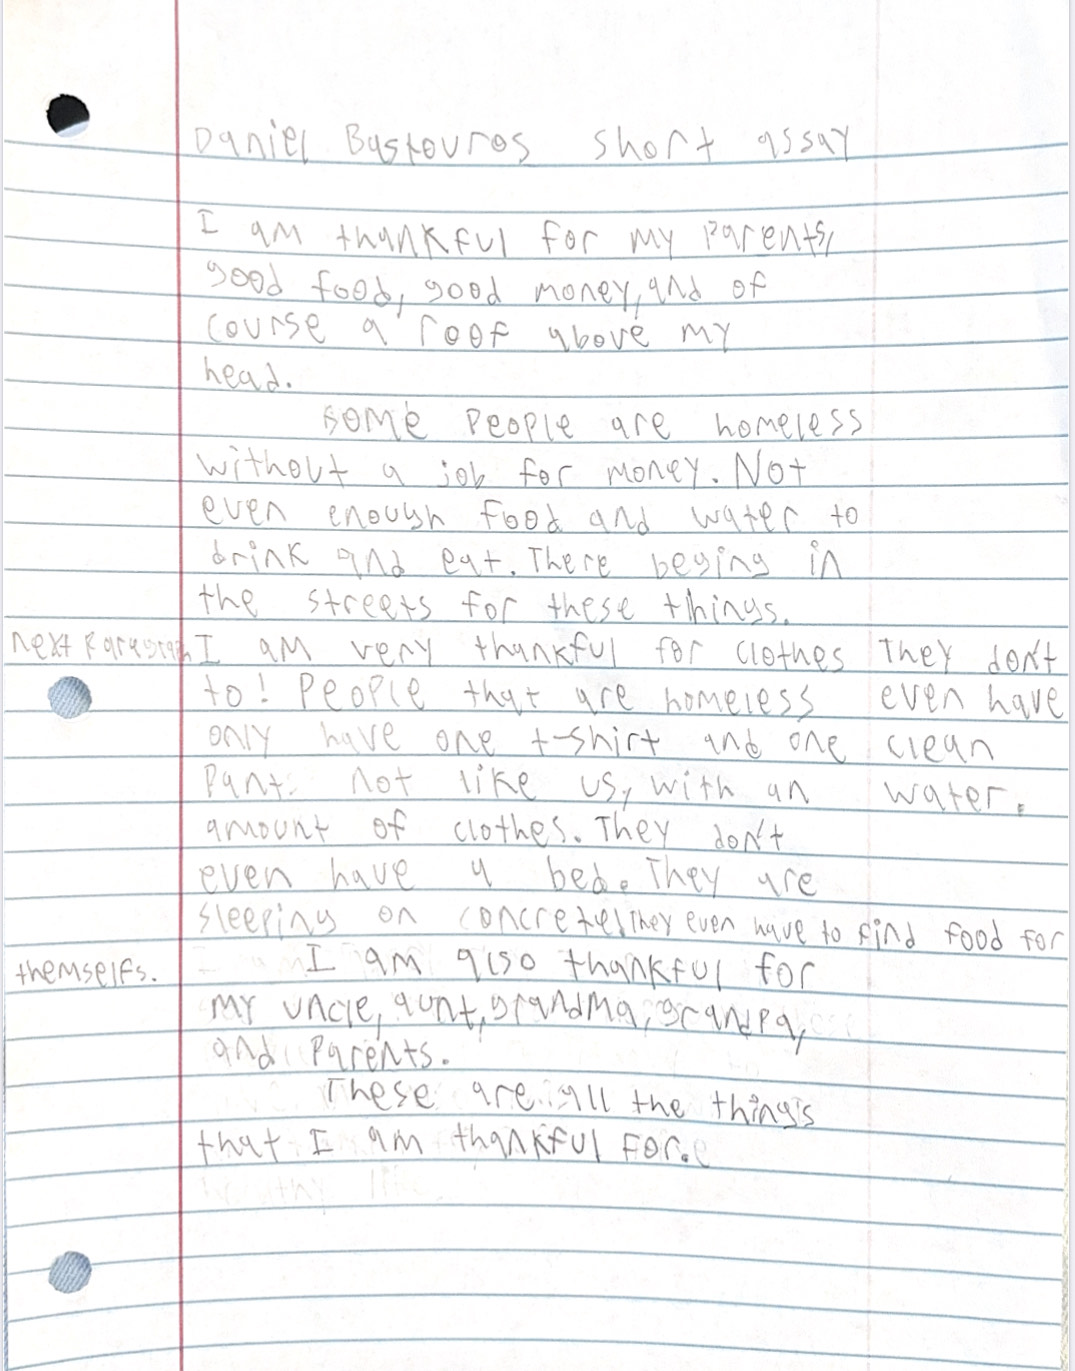 Daniel Bastouros short assay
I am thankful for my parents,
good food, good money, and of
course a roof above my
head.
some people are homeless
without a job for money. Not
even enough food and water to
drink and eat. There beging in
the streets for these things.
next Paragraph I am very thankful for clothes
to! People that are homeless
only have one t-shirt and one
Pant. not like us, with an
amount of clothes. They don't
even have a bed. They are
sleeping on concrete! They even have to find food for
themselfs.
They don't
even have
clean
water.
I am also thankful for
my uncle, aunt, grandma, grandpa,
and Parents.
These are all the things
that I am thankful for.